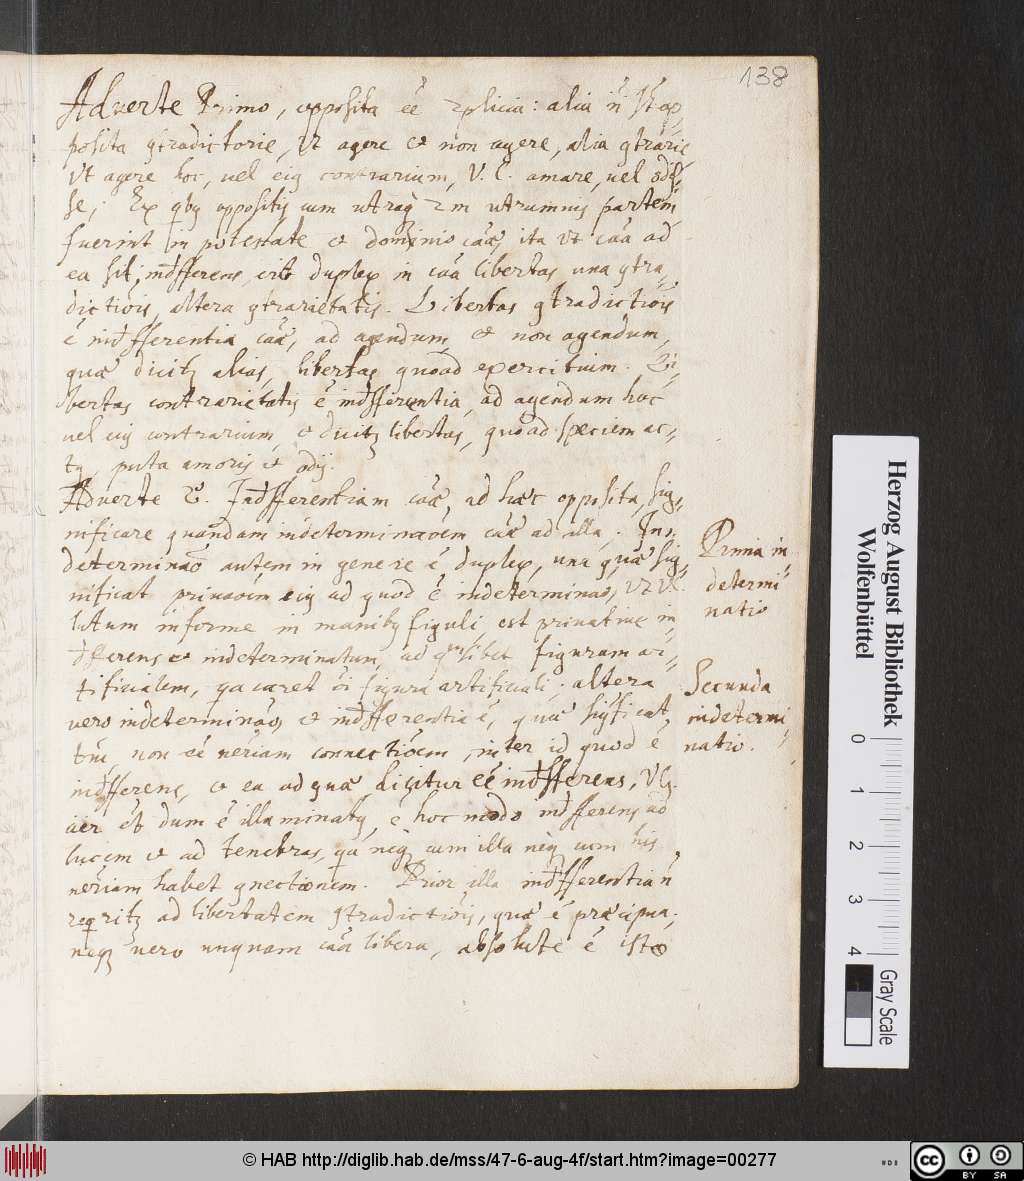 138
Adverte Primo, opposita eē 2plicia: alia n̄ st op
posita gtradictorie, Vt agere et non agere, alia gtrarie
Vt agere hoc, vel eig contrarium, V.C. amare, vel odis=
se; Ex qbg oppositis cum utraq 2m utrumnis partem
fuerint in potestate et dominio caæ, ita Vt caā ad
ea sit indifferens, erit duplex in caā libertas, una gtra=
dictiōis, altera gtrarietatis. Libertas gtradictiōis
ē indifferentia caæ, ad agendum et non agendum,
quæ dicitz alias, libertas quoad exercitium. Li=
bertas contrarietatis ē indifferentia, ad agendum hoc
vel eig contrarium, et dicitz libertas, quoad speciem ac=
tg, puta amoris et odij.
Adverte 2. Indifferentiam caæ, ad hæc opposita, sig=
nificare quandam indeterminaōem caæ ad illa. In=
determinaō autem in genere ē duplex, una quæ sig=
nificat privaōem eig ad quod ē indeterminaō, Vt V.C.
lutum informe in manibg figuli, est privative in=
differens et indeterminatum, ad qmlibet figuram ar=
tificialem, qa caret oī figura artificiali; altera
vero indeterminaō, et indifferentia ē, quæ significat
tm̄, non eē neriam connectiōem, inter id quod ē
indifferens, et ea ad quæ dicitur eē indifferens, VG.
aer ēt dum ē illuminatg, ē hoc modo indifferens ad
lucem et ad tenebras, qa neq cum illa neq cum his
neriam habet gnectionem. Prior illa indifferentia n̄
reqritz ad libertatem gtradictiōis, quæ ē præcipua;
neqz vero unquam caā libera, absolute ē isto
Prima in=
determi=
natio
Secunda
indetermi=
natio.
Herzog August Bibliothek
Wolfenbüttel
0 1 2 3 4
Gray Scale
© HAB http://diglib.hab.de/mss/47-6-aug-4f/start.htm?image=00277
CC BY SA